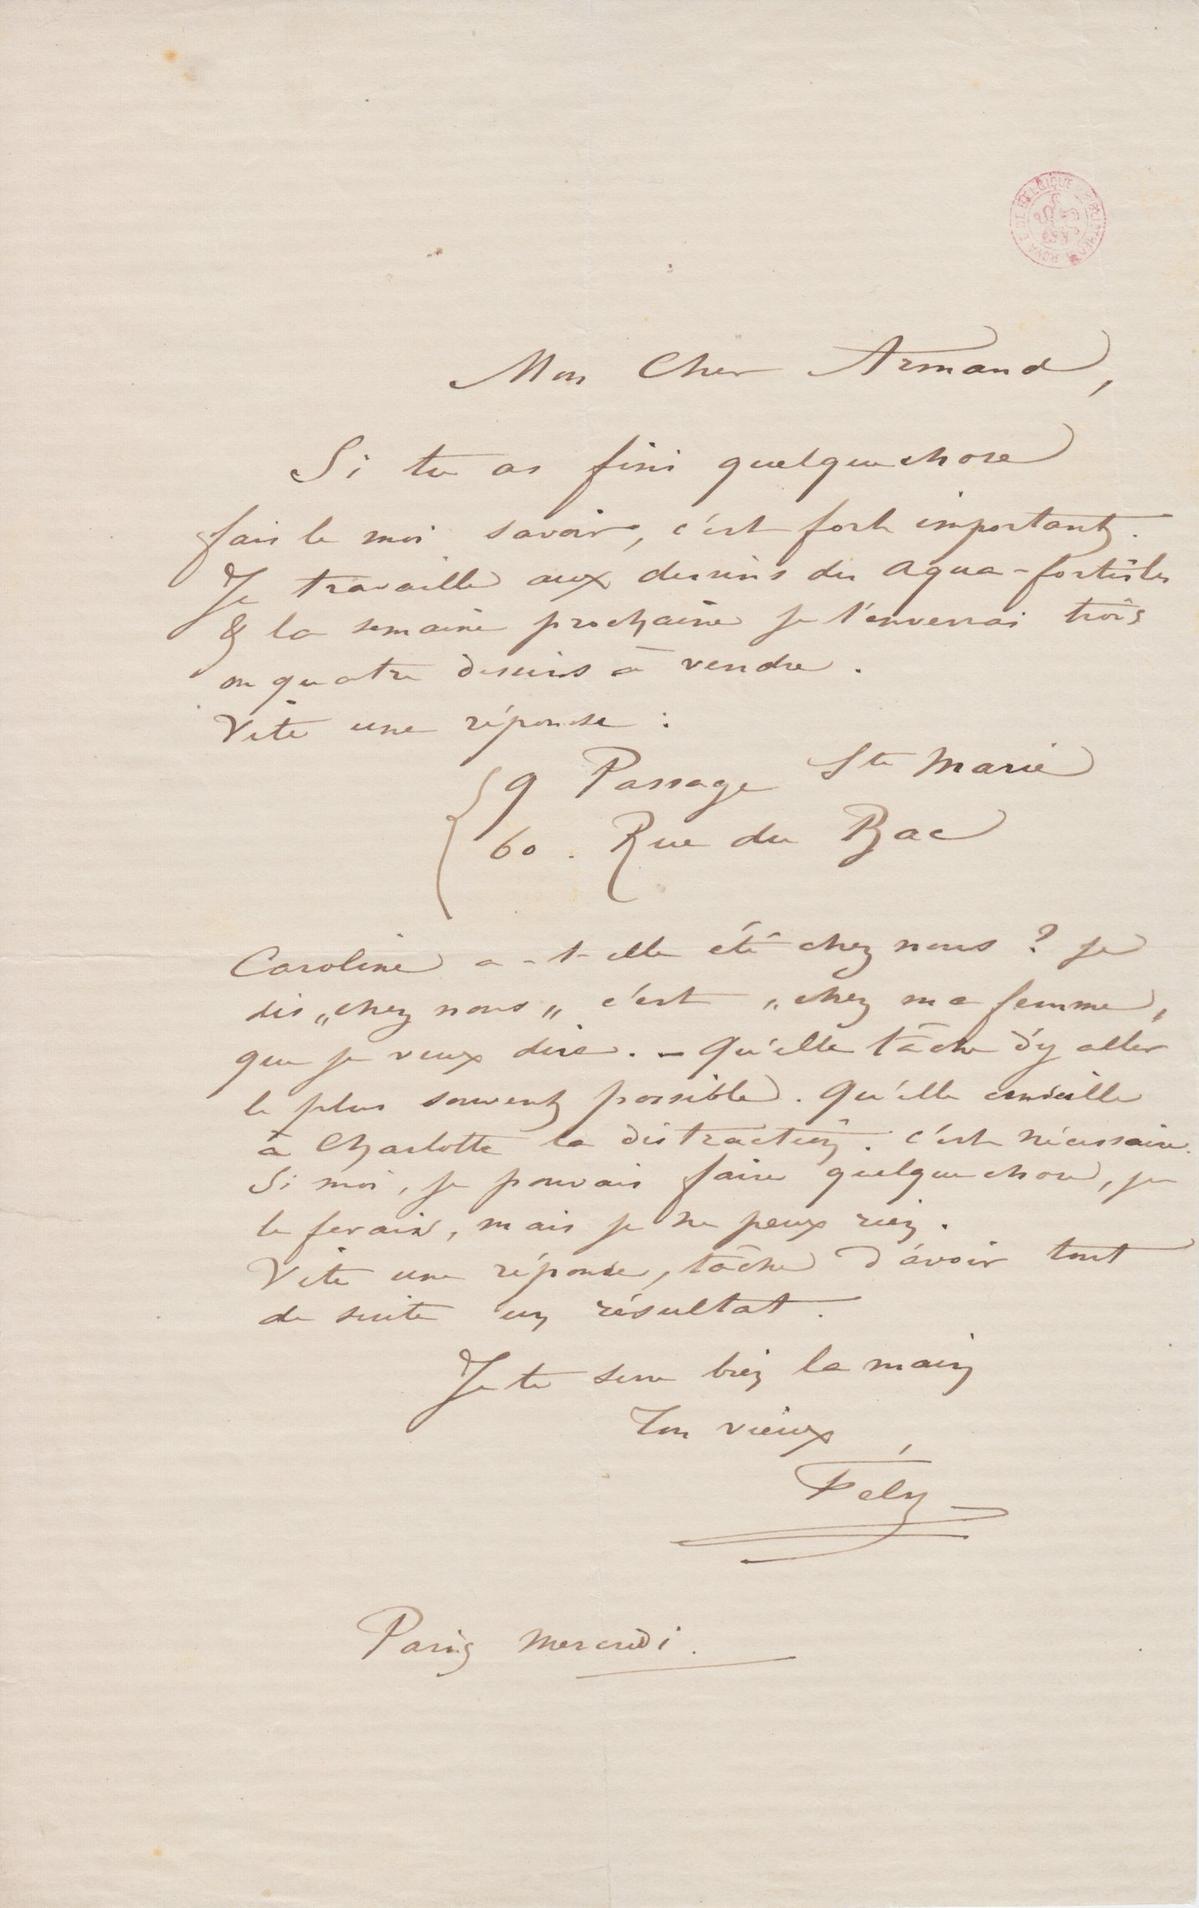 BIBLIOTHÈQUE ROYALE DE BELGIQUE
Mon Cher Armand,
Si tu as fini quelquechose
fais le moi savoir, c'est fort important.
Je travaille aux dessins des aqua-fortistes
& la semaine prochaine je t'enverrai trois
ou quatre dessins à vendre.
Vite une réponse :
9 Passage Ste Marie
60. Rue du Bac
Caroline a-t-elle été chez nous ? je
dis „chez nous„ c'est „chez ma femme„
que je veux dire. - Qu'elle tâche d'y aller
le plus souvent possible. Qu'elle conseille
à Charlotte la distraction. c'est nécessaire.
Si moi, je pouvais faire quelquechose, je
le ferais, mais je ne peux rien.
Vite une réponse, tâche d'avoir tout
de suite un résultat.
Je te serre bien la main
Ton vieux
Fély
Paris mercredi.